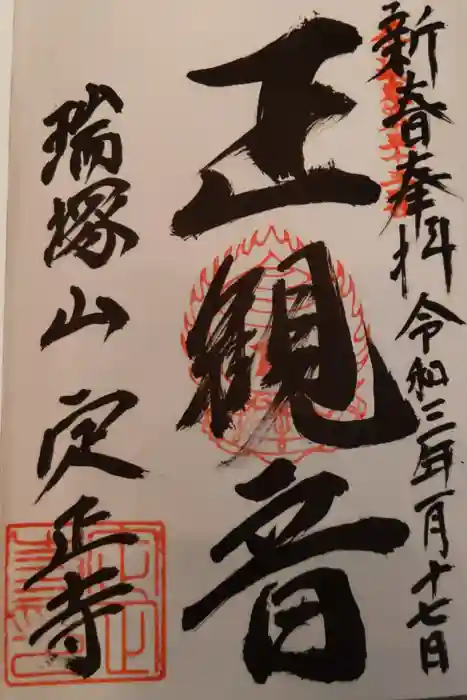 新春奉拝 令和三年一月十七日
正観音
瑞塚山 定正寺